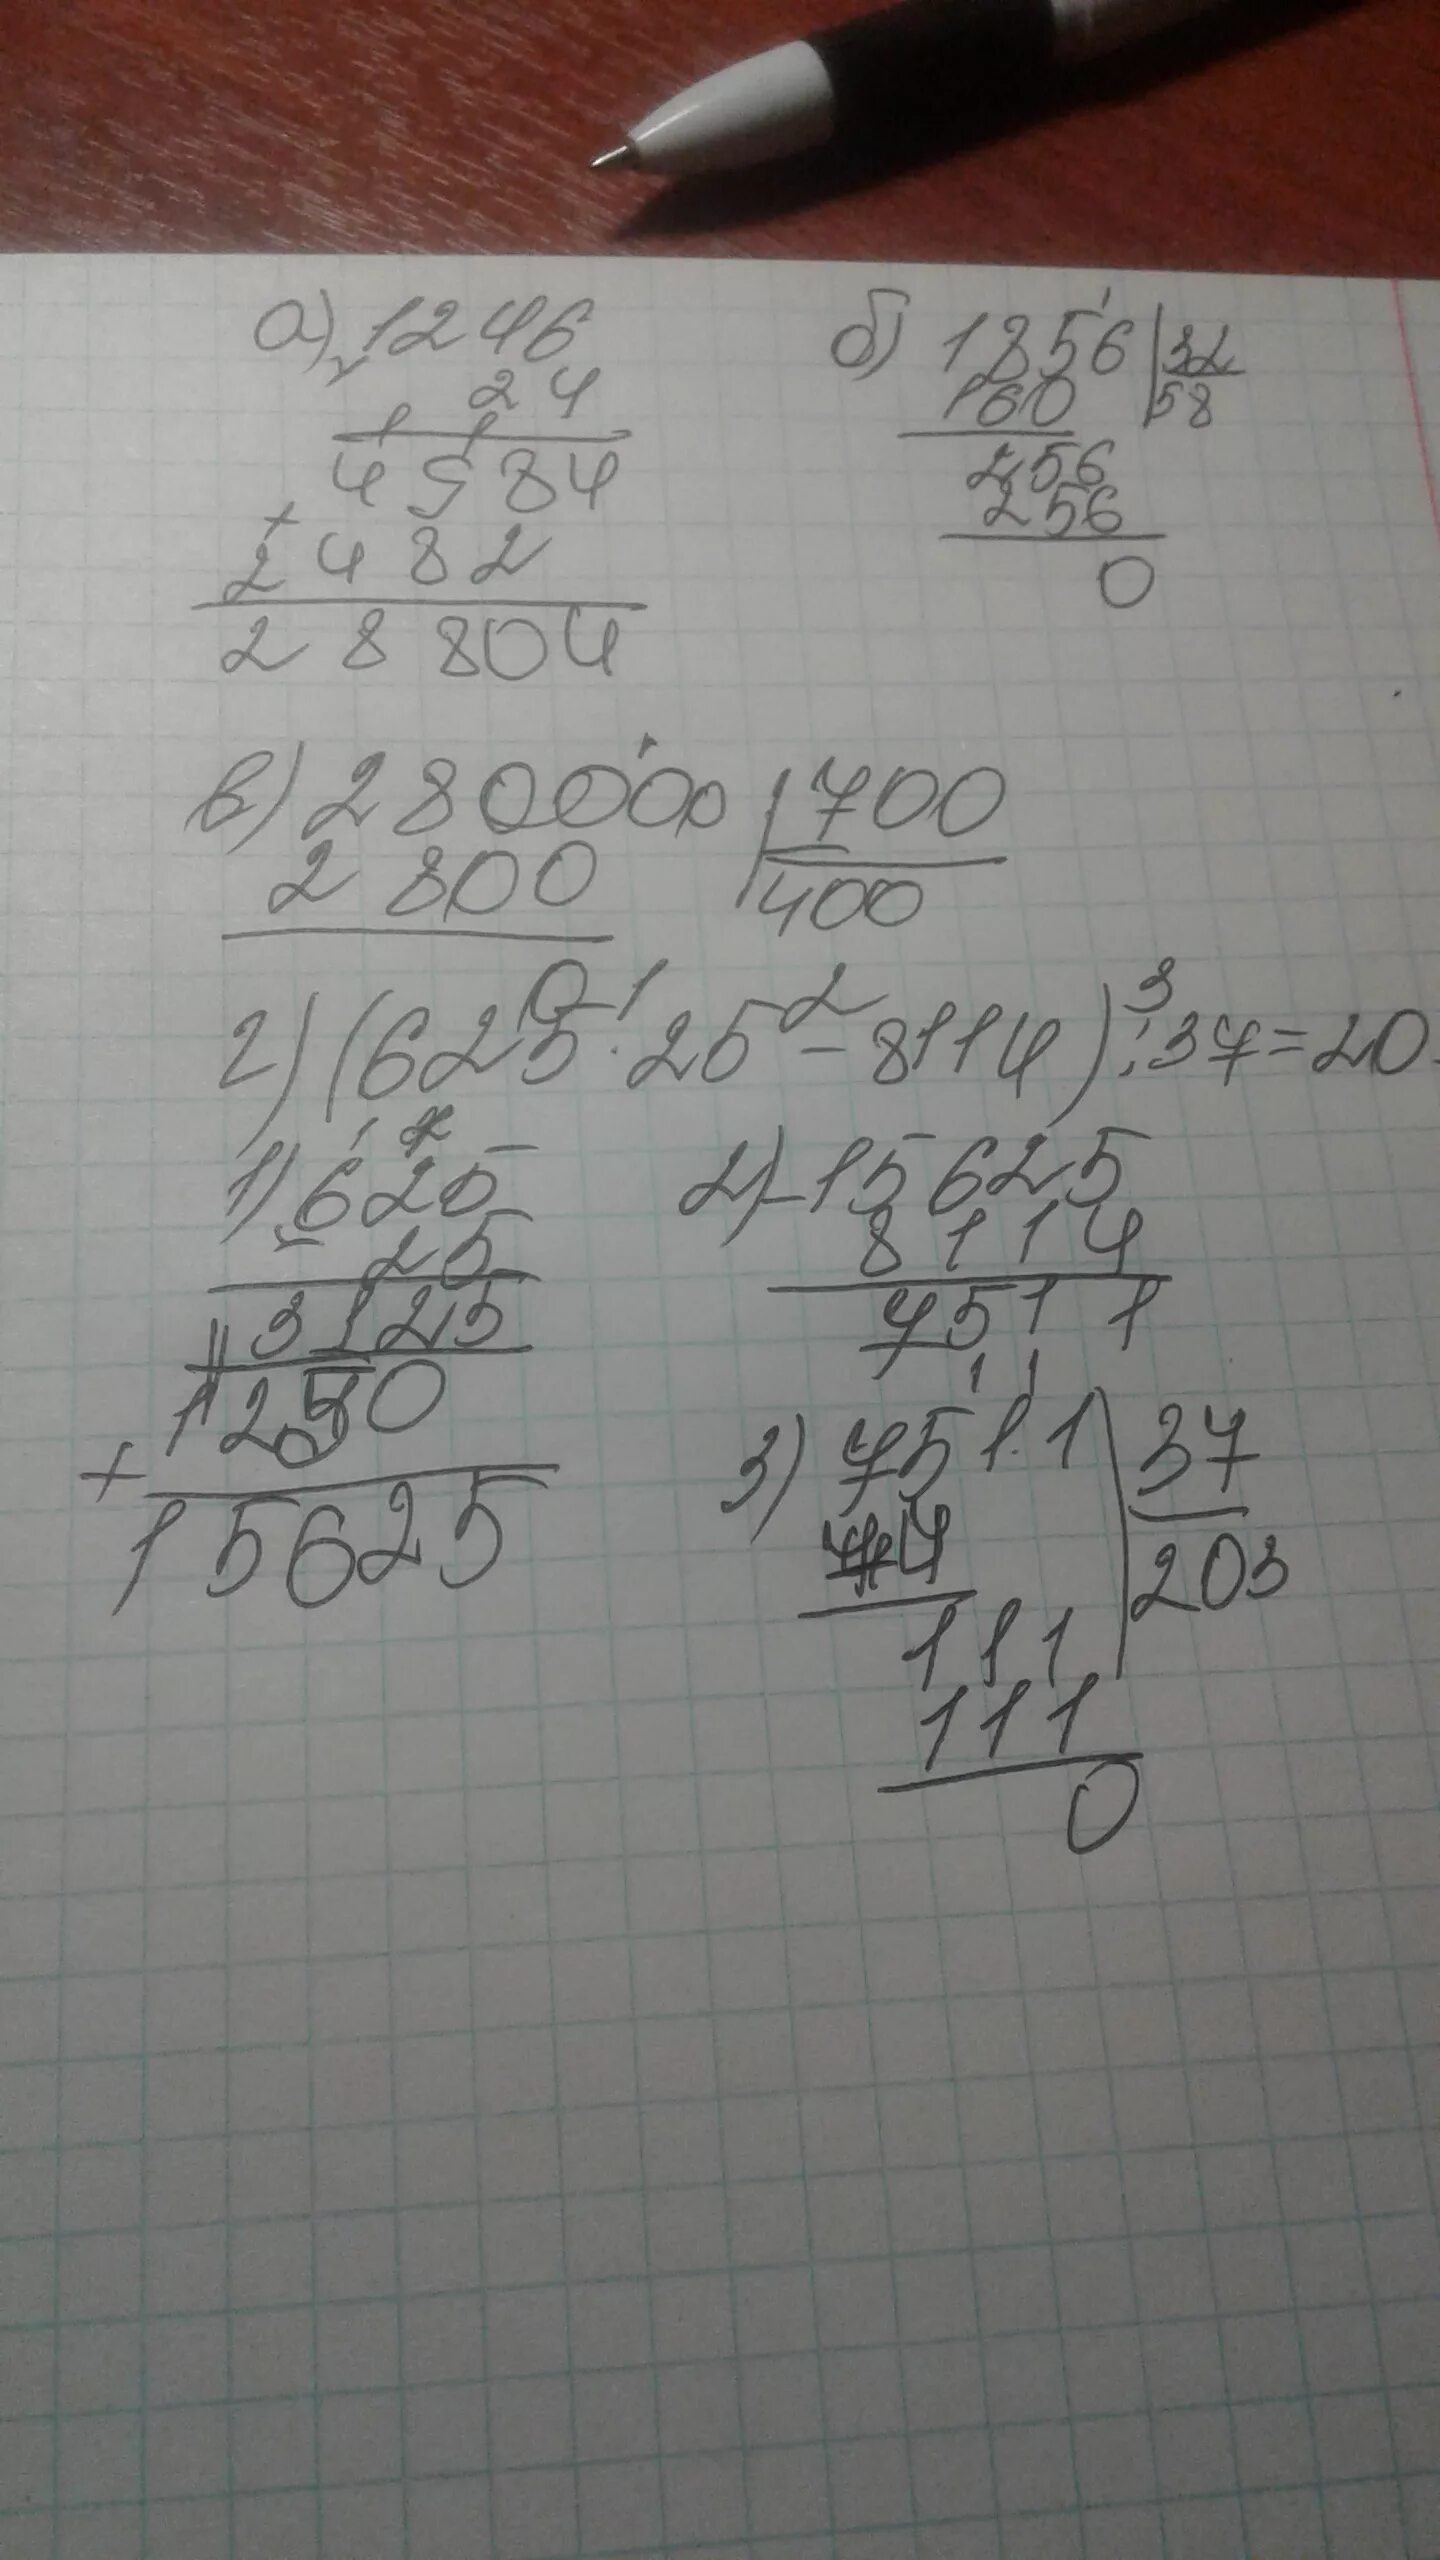 а) 1246
24
4984
+
2482
28804
б) 1856 | 32
160 | 58
256
256
0
в) 280000 | 700
2800 | 400
0
г) (625 · 25 - 8114) : 37 = 20
1 2 3
1) 625
25
3125
1250
+
15625
2) - 15625
8114
7511
3) 7511 | 37
74 | 203
111
111
0